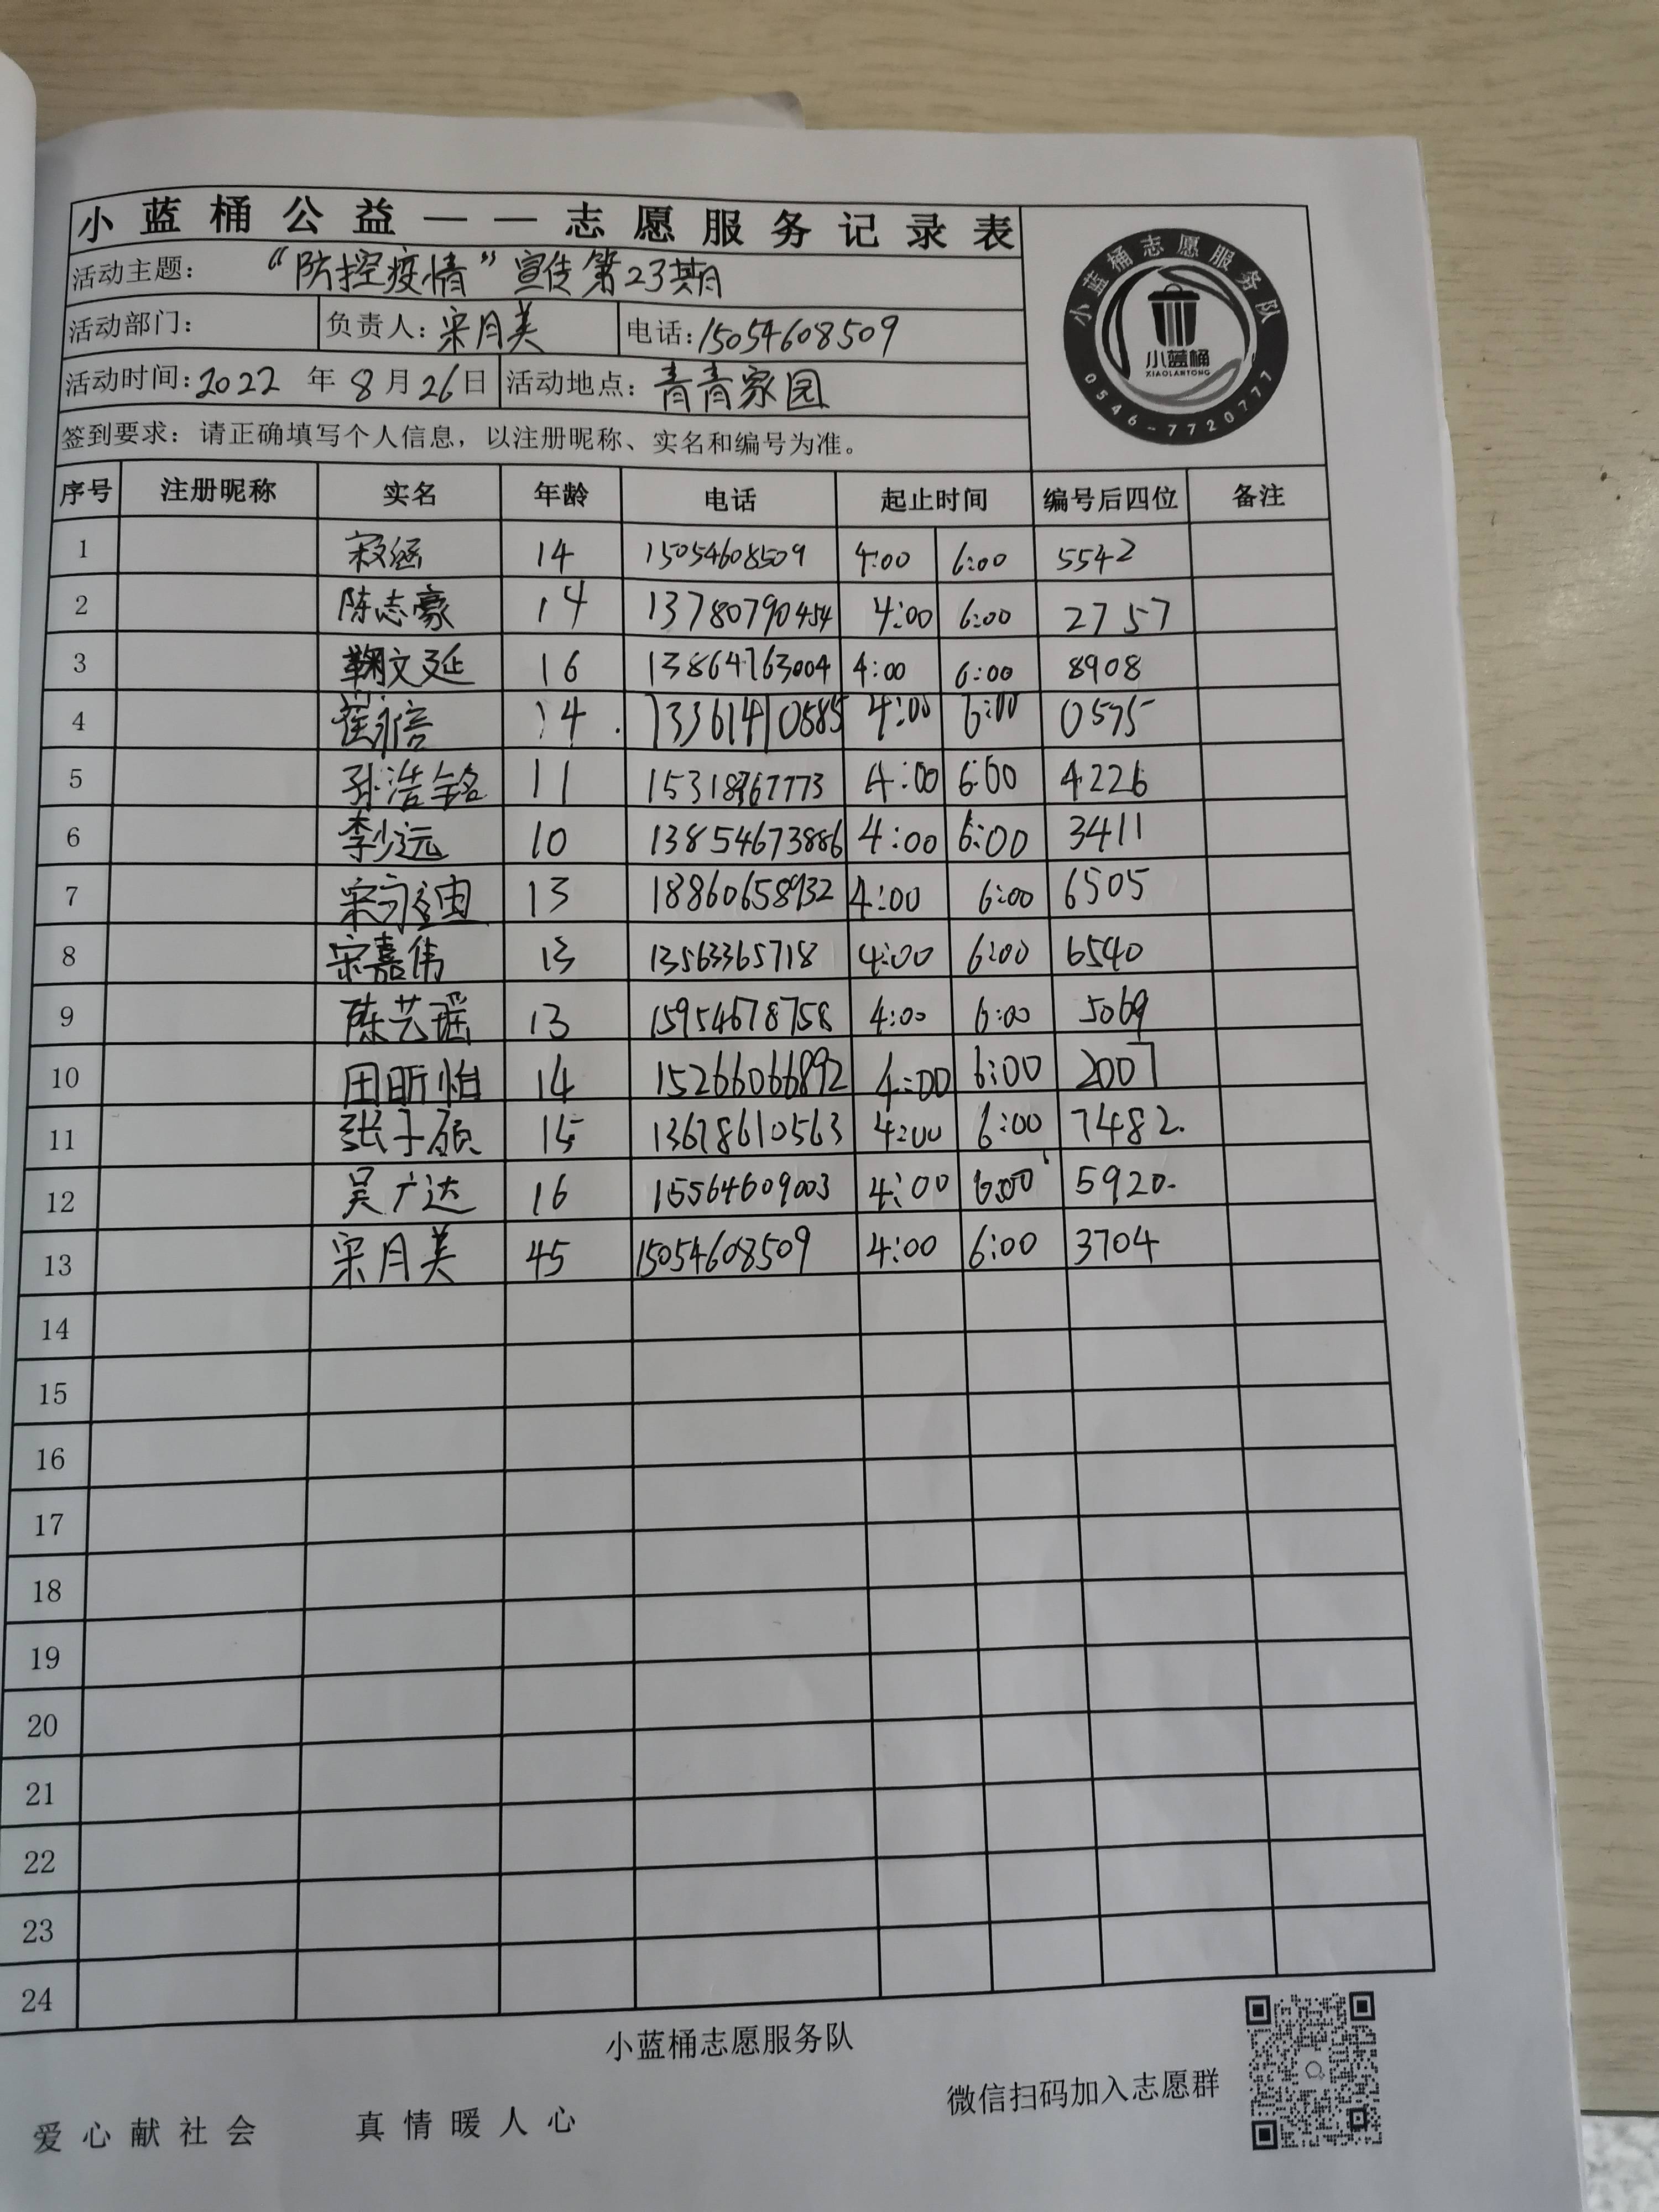 小蓝桶公益——志愿服务记录表
活动主题：“防控疫情”宣传第23期
活动部门： 负责人：宋月美 电话：15054608509
活动时间：2022 年 8 月 26 日 活动地点：青青家园
签到要求：请正确填写个人信息，以注册昵称、实名和编号为准。
小蓝桶志愿服务队
小蓝桶
XIAOLANTONG
0546-7720777
序号 注册昵称 实名 年龄 电话 起止时间 编号后四位 备注
1 14 15054608509 4:00 6:00 5542
2 陈志豪 14 13780790454 4:00 6:00 2757
3 鞠文延 16 13864763004 4:00 6:00 8908
4 14 13361410585 4:00 6:00 0575
5 孙浩铭 11 15318767773 4:00 6:00 4226
6 李少远 10 13854673886 4:00 6:00 3411
7 13 18860658932 4:00 6:00 6505
8 宋嘉伟 13 13563365718 4:00 6:00 6540
9 陈艺瑶 13 15954678758 4:00 6:00 5069
10 田昕怡 14 15266066892 4:00 6:00 2007
11 15 13678610563 4:00 6:00 7482.
12 吴广达 16 15564609003 4:00 6:00 5920.
13 宋月美 45 15054608509 4:00 6:00 3704
14
15
16
17
18
19
20
21
22
23
24
小蓝桶志愿服务队
微信扫码加入志愿群
爱心献社会 真情暖人心